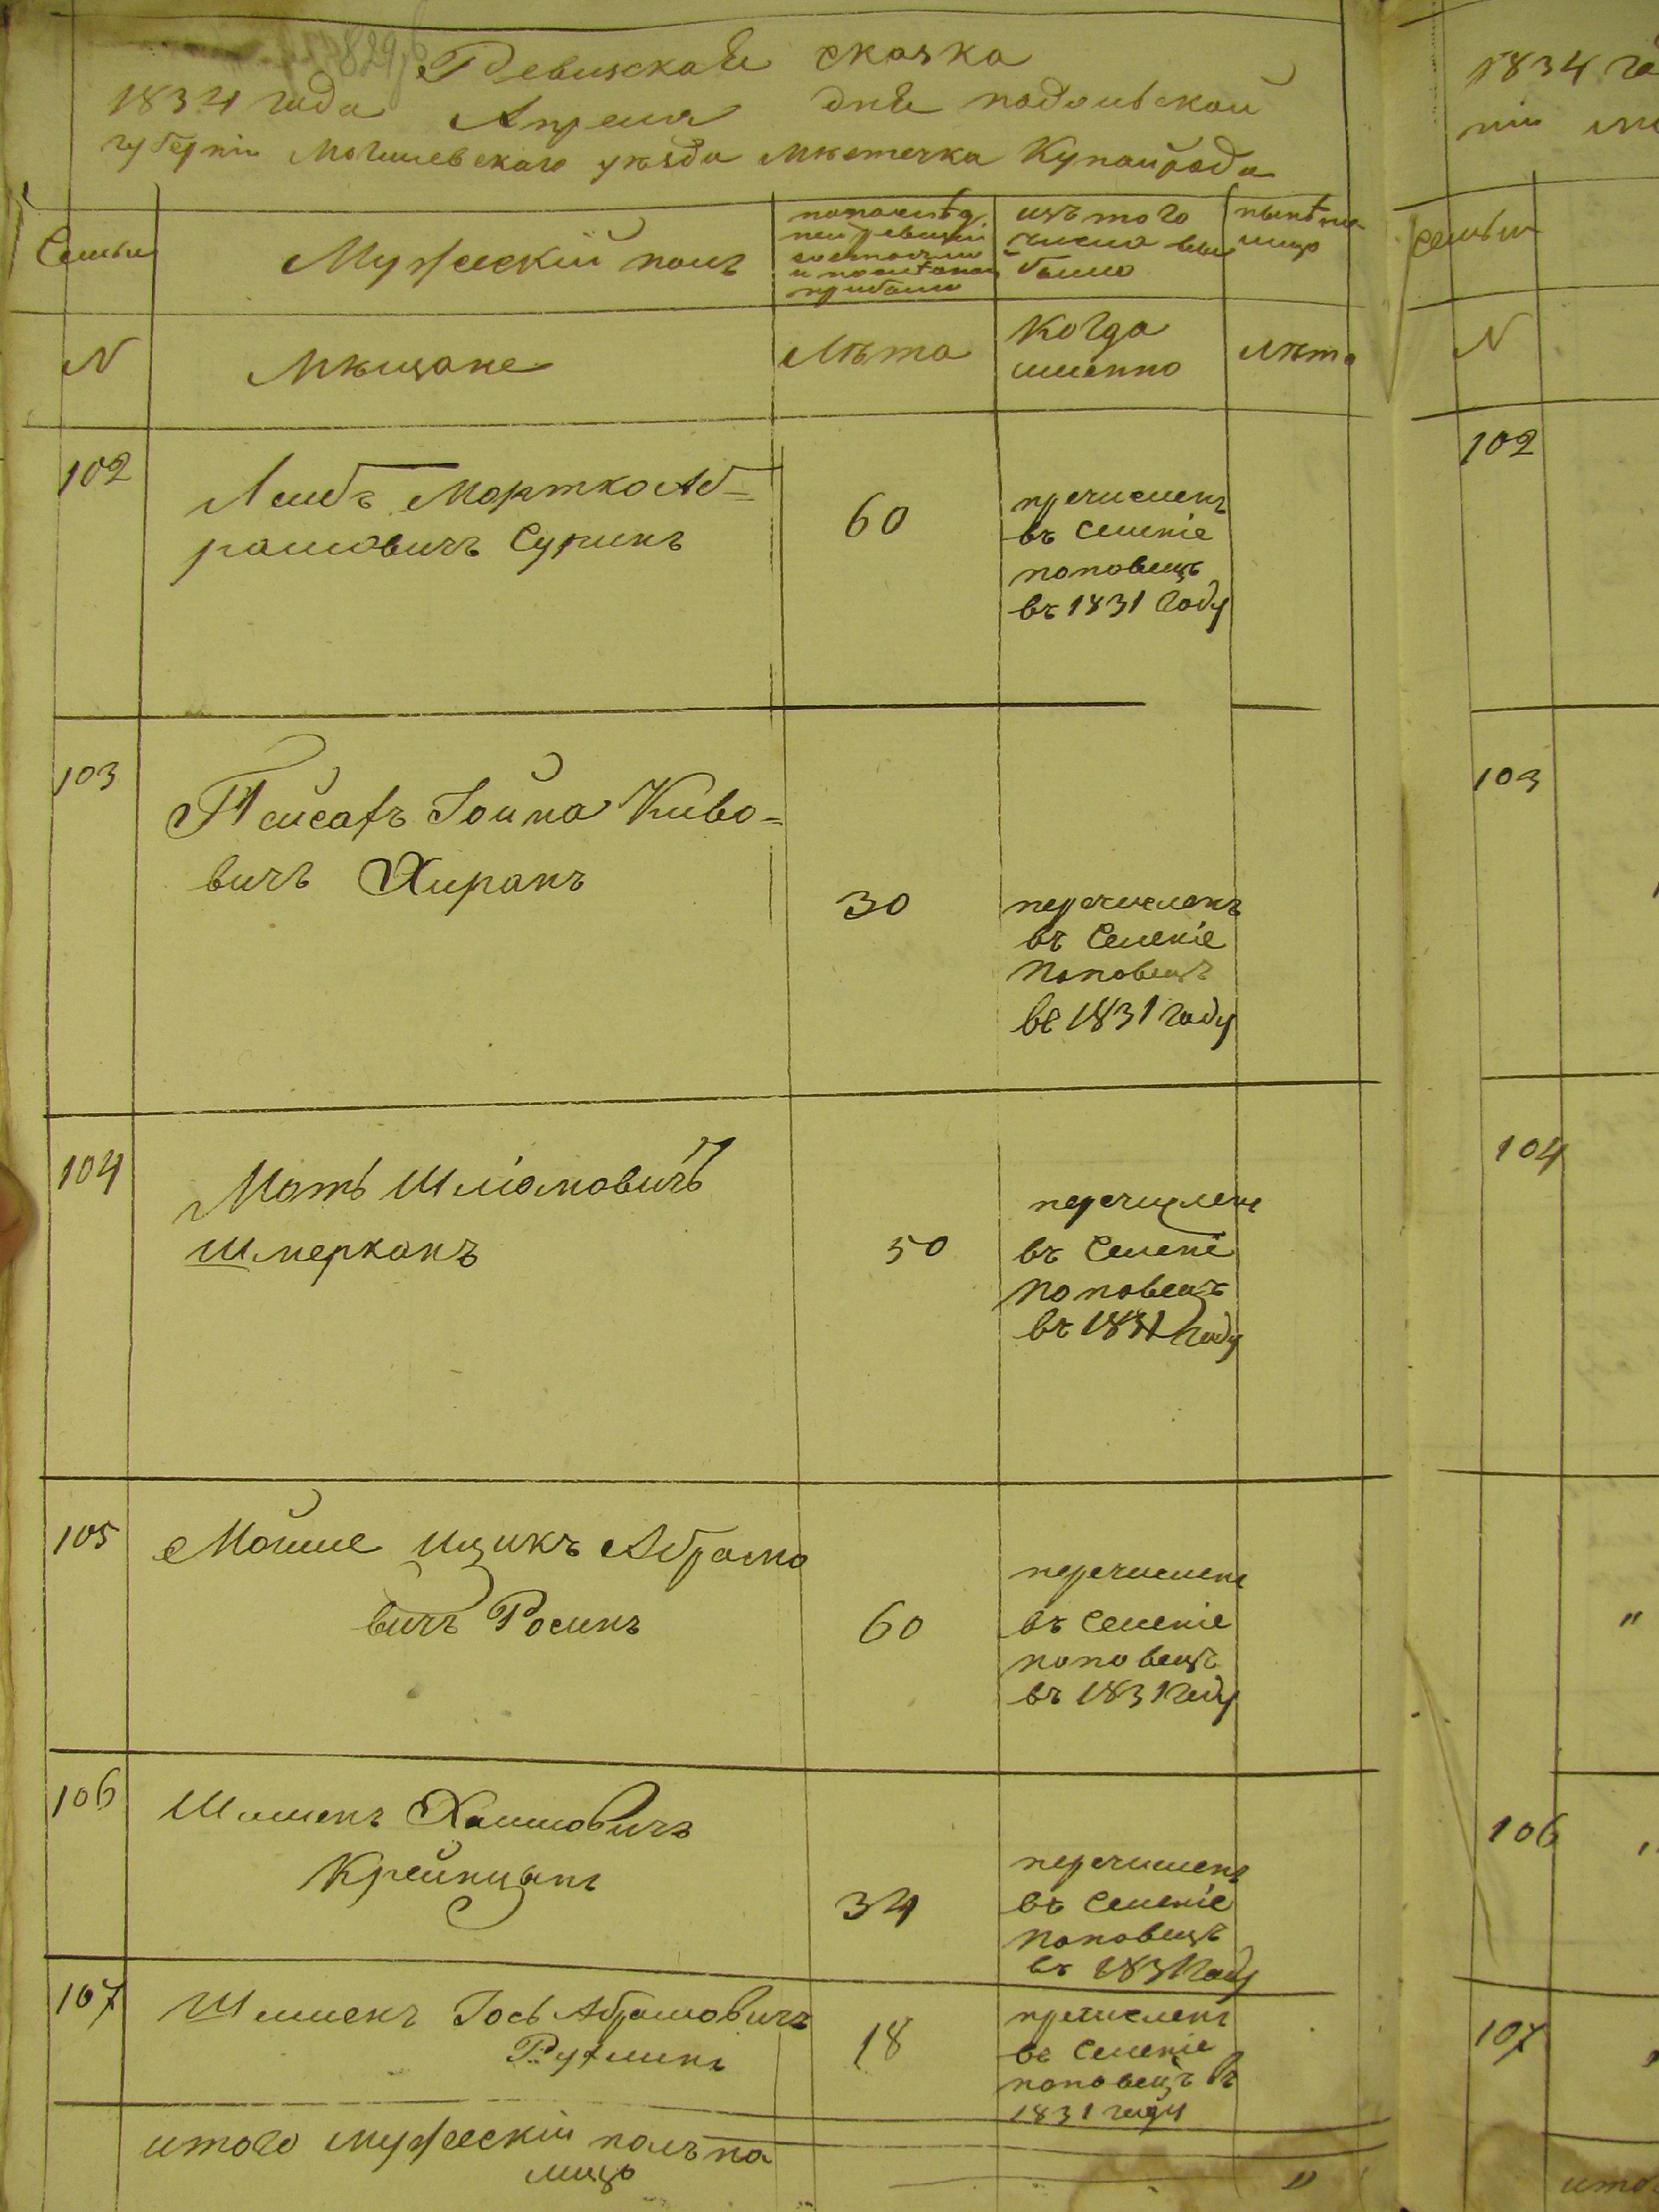 Ревизская сказка
1834 года Апреля дня подольской
губерніи Могилевскаго уѣзда мѣстечка Купайрода
Семьи
Мужескій полъ
по послѣд
ней ревизіи
состояло
и послѣ оной
прибыло
изъ того
числа вы
было
нынѣ на
лицо
N
мѣщане
Лѣта
Когда
именно
лѣта
102
Лейбъ Мортко Аб=
рамовичъ Суринъ
60
пречисленъ
въ Селеніе
поповецъ
въ 1831 Году
103
Пейсахъ Іойна Киво=
вичъ Хиранъ
30
перечисленъ
въ Селеніе
Поповецъ
въ 1831 году
104
Мать Шліомовичъ
Шмерканъ
50
перечисленъ
въ Селеніе
Поповецъ
въ 1831 Году
105
Мойше Ицикъ Абрамо
вичъ Росинъ
60
перечисленъ
въ Селеніе
поповецъ
въ 1831 Году
106
Шлименъ Хаимовичъ
Крейнцынъ
34
перечисленъ
въ Селеніе
Поповецъ
въ 1831 Году
107
Шлименъ Іось Абрамовичъ
18
пречисленъ
въ Селеніе
поповецъ въ
1831 году
итого мужескій полъ на
лицо
"
1834 го
ніи
семьи
N
102
103
104
"
106
107
итого